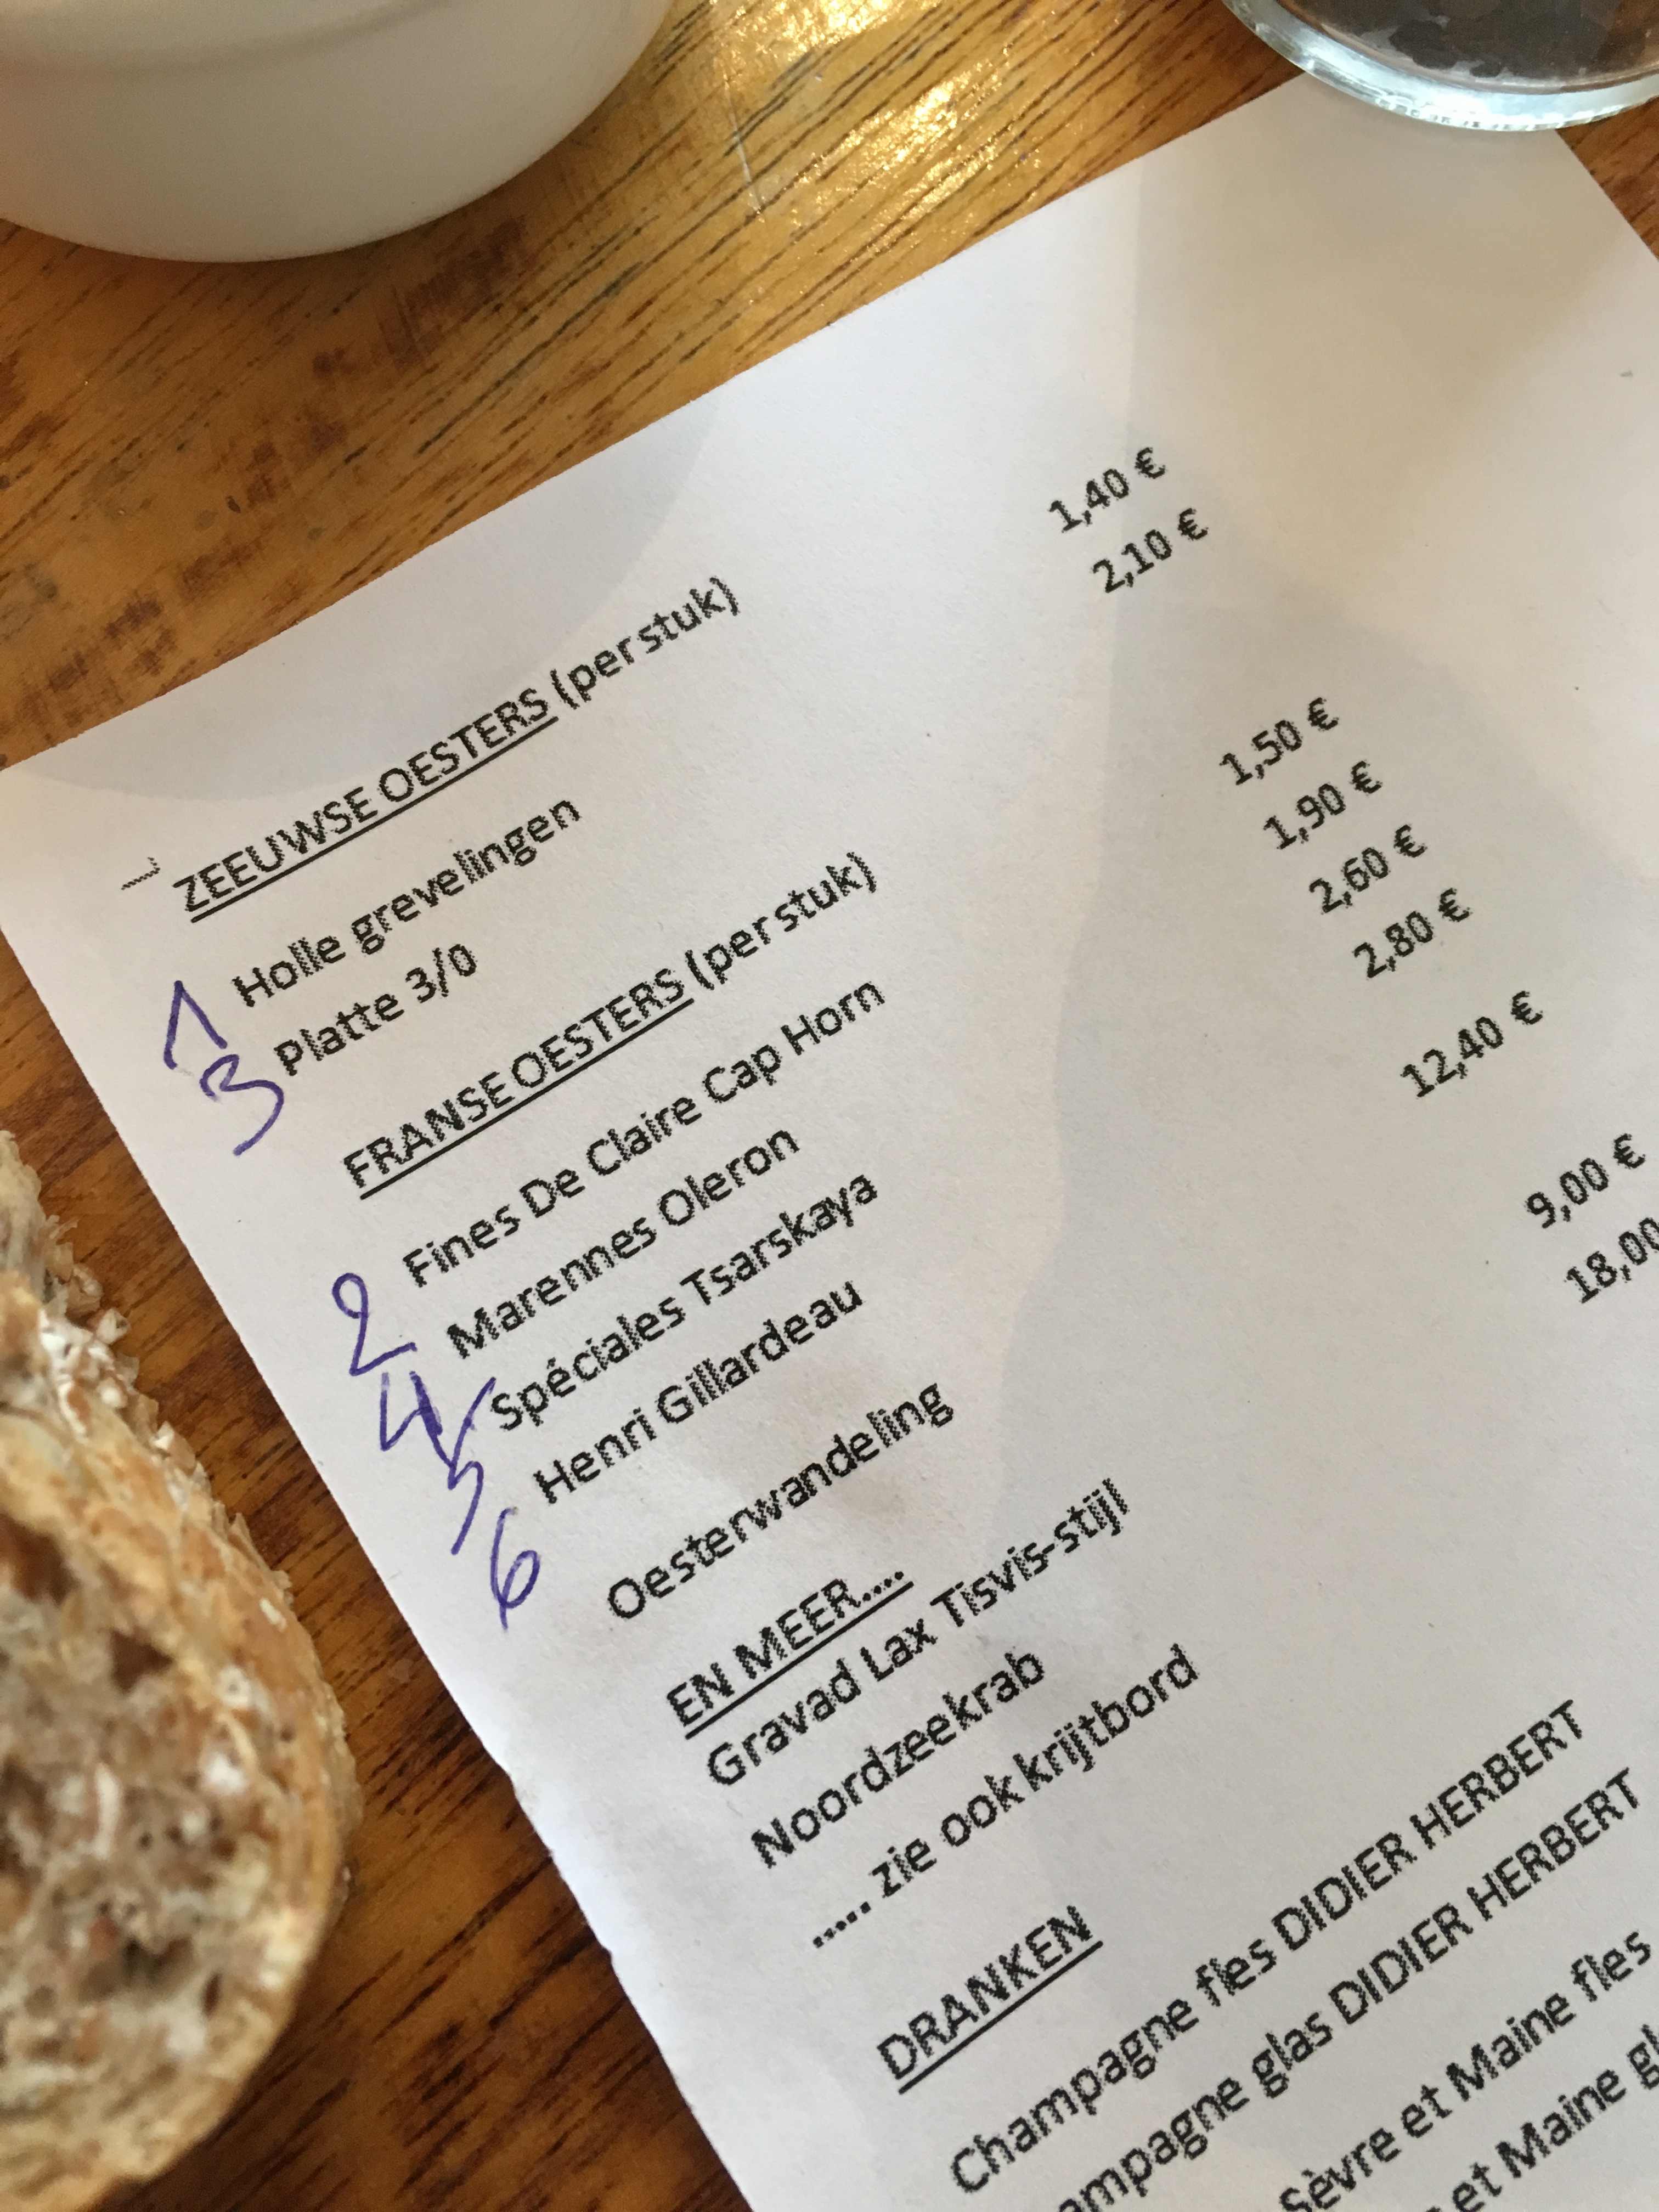 ZEEUWSE OESTERS (per stuk)
1 Holle grevelingen 1,40 €
3 Platte 3/0 2,10 €
FRANSE OESTERS (per stuk)
2 Fines De Claire Cap Horn 1,50 €
4 Marennes Oleron 1,90 €
5 Spéciales Tsarskaya 2,60 €
6 Henri Gillardeau 2,80 €
Oesterwandeling 12,40 €
EN MEER....
Gravad Lax Tisvis-stijl 9,00 €
Noordzeekrab 18,00
.... zie ook krijtbord
DRANKEN
Champagne fles DIDIER HERBERT
ampagne glas DIDIER HERBERT
Sèvre et Maine fles
et Maine gl